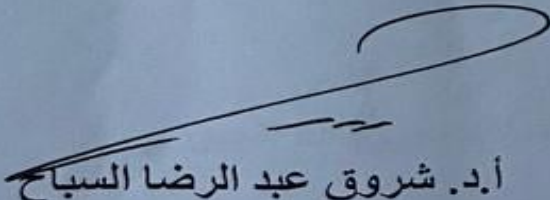 أ.د. شروق عبد الرضا السباح